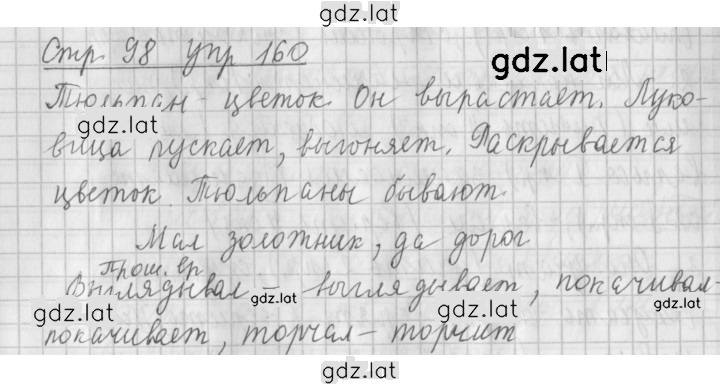 gdz.lat
Стр 98 упр 160
gdz.lat
Тюльпан - цветок. Он вырастает. Луко-
gdz.lat
вица пускает, выгоняет. Раскрывается
цветок. Тюльпаны бывают.
Мал золотник, да дорог
Прош. вр
Выглядывал - выглядывает, покачивал-
gdz.lat
gdz.lat
gdz.lat
gdz.lat
покачивает, торчал - торчит
gdz.lat